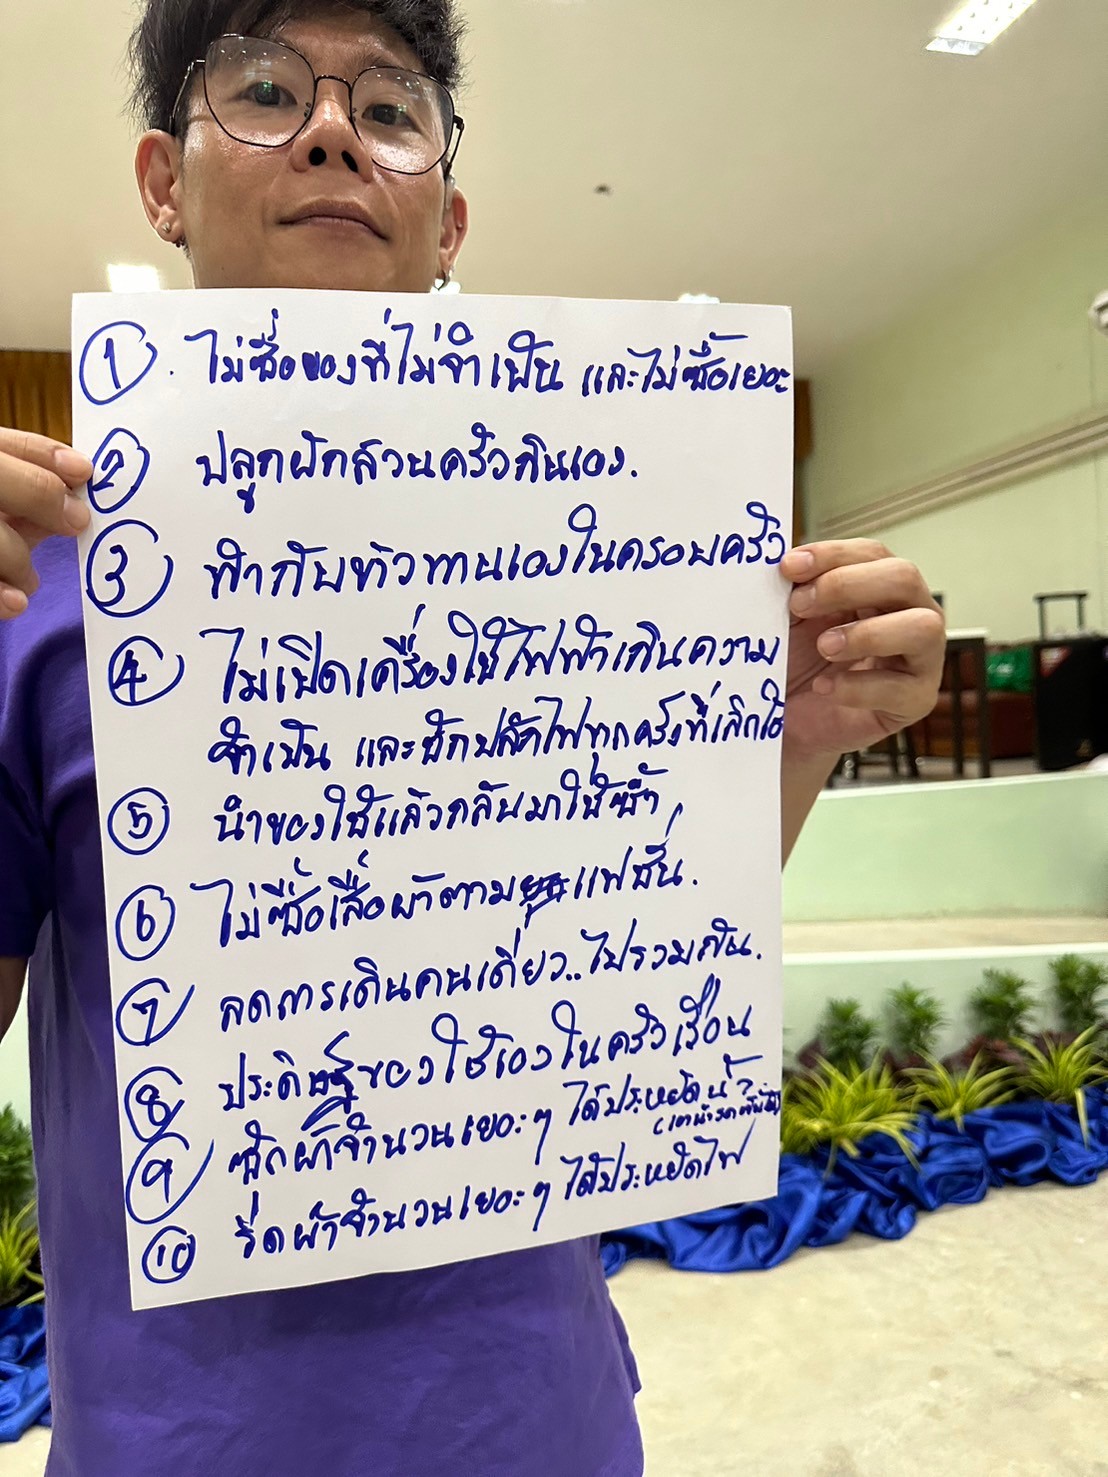 ① ไม่ซื้อของที่ไม่จำเป็น และไม่ซื้อเยอะ
② ปลูกผักสวนครัวกินเอง.
③ ทำกับข้าวทานเองในครอบครัว
④ ไม่เปิดเครื่องใช้ไฟฟ้าเกินความ
จำเป็น และชักปลั๊กไฟทุกครั้งที่เลิกใช้
⑤ นำของใช้แล้วกลับมาใช้ซ้ำ
⑥ ไม่ซื้อเสื้อผ้าตามแฟชั่น.
⑦ ลดการเดินคนเดียว..ไปรวมกัน.
⑧ ประดิษฐ์ของใช้เองในครัวเรือน
⑨ ซักผ้าจำนวนเยอะๆ ได้ประหยัดน้ำ
⑩ รีดผ้าจำนวนเยอะๆ ได้ประหยัดไฟ